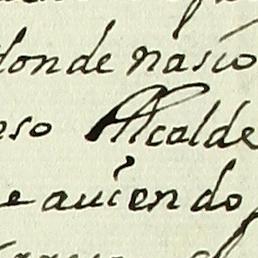 donde nasio
eso Alcalde
e auiendo